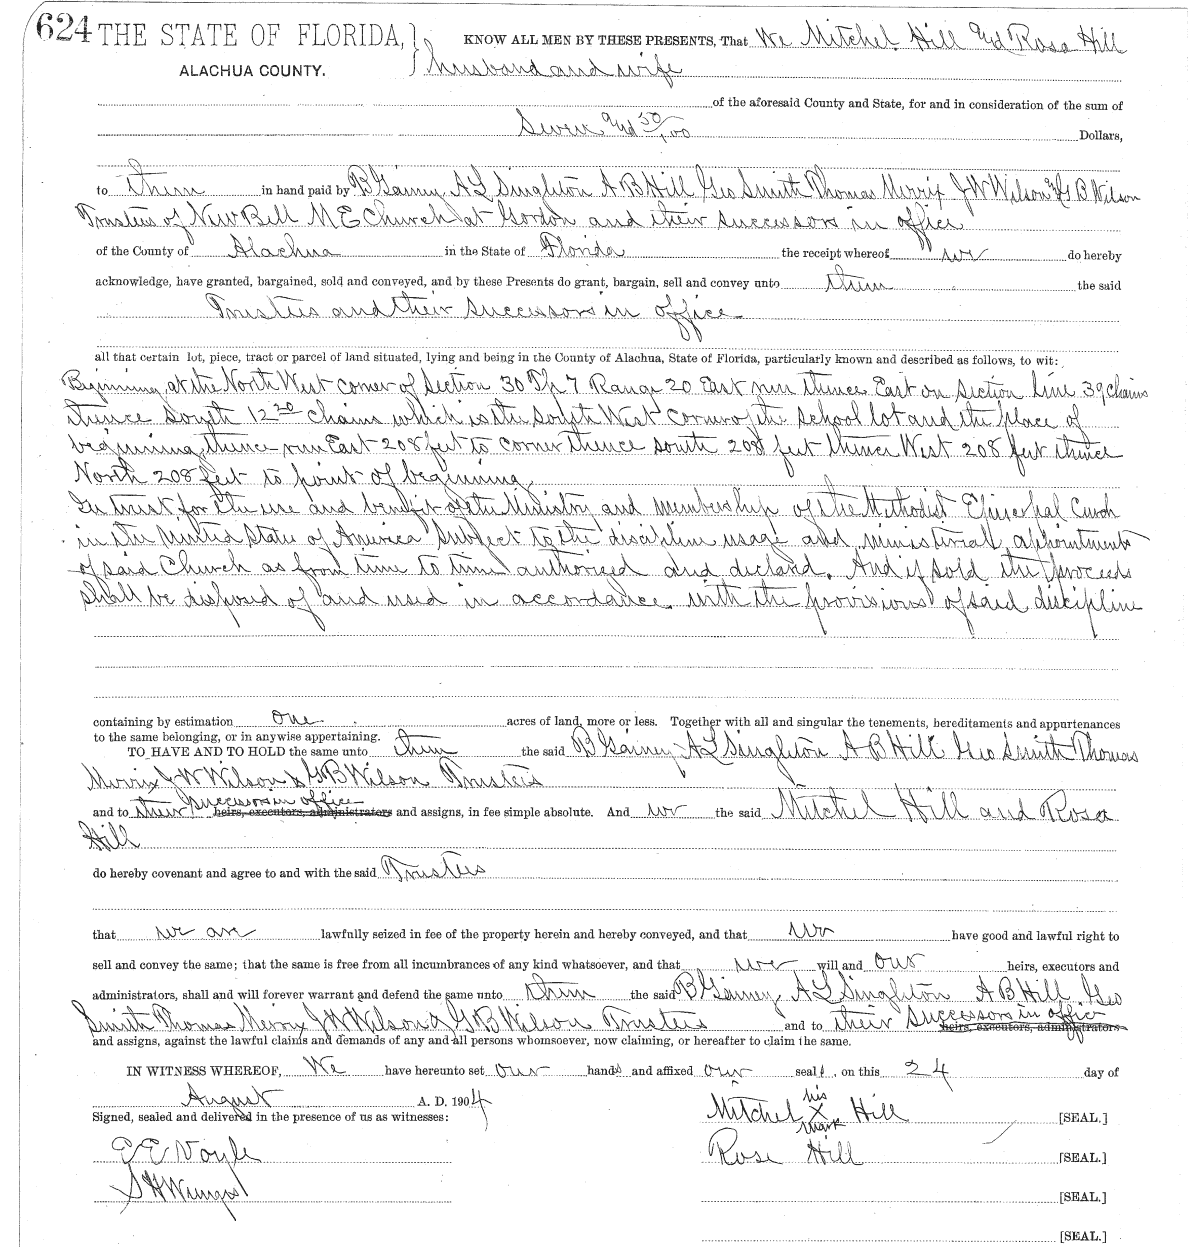 624 THE STATE OF FLORIDA, } KNOW ALL MEN BY THESE PRESENTS, That We Mitchel Hill and Rosa Hill
ALACHUA COUNTY. husband and wife
of the aforesaid County and State, for and in consideration of the sum of
Seven and 50/100 Dollars,
to them in hand paid by B Gainey A L Singleton A B Hill Geo Smith Thomas Merrix J W Wilson & G B Wilson
Trustees of New Bell M E Church at Gordon and their successors in office
of the County of Alachua in the State of Florida the receipt whereof we do hereby
acknowledge, have granted, bargained, sold and conveyed, and by these Presents do grant, bargain, sell and convey unto them the said
Trustees and their successors in office
all that certain lot, piece, tract or parcel of land situated, lying and being in the County of Alachua, State of Florida, particularly known and described as follows, to wit:
Beginning at the North West corner of Section 30 Tp 7 Range 20 East run thence East on Section line 39 chains
thence South 12 20 chains which is the South West Corner of the school lot and the place of
beginning, thence run East 208 feet to corner thence south 208 feet thence West 208 feet thence
North 208 feet to point of beginning
In trust for the use and benefit of the Ministry and membership of the Methodist Episcopal Curch
in the United States of America Subject to the discipline usage and ministerial appointments
of said Church as from time to time authorised and declard. And if sold the proceeds
shall be disposed of and used in accordance with the provisions of said discipline
containing by estimation one acres of land, more or less. Together with all and singular the tenements, hereditaments and appurtenances
to the same belonging, or in anywise appertaining.
TO HAVE AND TO HOLD the same unto them the said B Gainey A L Singleton A B Hill Geo Smith Thomas
Merrix J W Wilson & G B Wilson Trustees
successors in office
and to their heirs, executors, administrators and assigns, in fee simple absolute. And we the said Mitchel Hill and Rosa
Hill
do hereby covenant and agree to and with the said Trustees
that we are lawfully seized in fee of the property herein and hereby conveyed, and that we have good and lawful right to
sell and convey the same; that the same is free from all incumbrances of any kind whatsoever, and that we will and our heirs, executors and
administrators, shall and will forever warrant and defend the same unto them the said B Gainey A L Singleton A B Hill Geo
Smith Thomas Merrix J W Wilson & G B Wilson Trustees and to their Successors in office heirs, executors, administrators
and assigns, against the lawful claims and demands of any and all persons whomsoever, now claiming, or hereafter to claim the same.
IN WITNESS WHEREOF, We have hereunto set our hands and affixed our seals, on this 24 day of
August A. D. 1904
Signed, sealed and delivered in the presence of us as witnesses: Mitchel his X mark Hill [SEAL.]
E E Voyle Rose Hill [SEAL.]
S H [SEAL.]
[SEAL.]